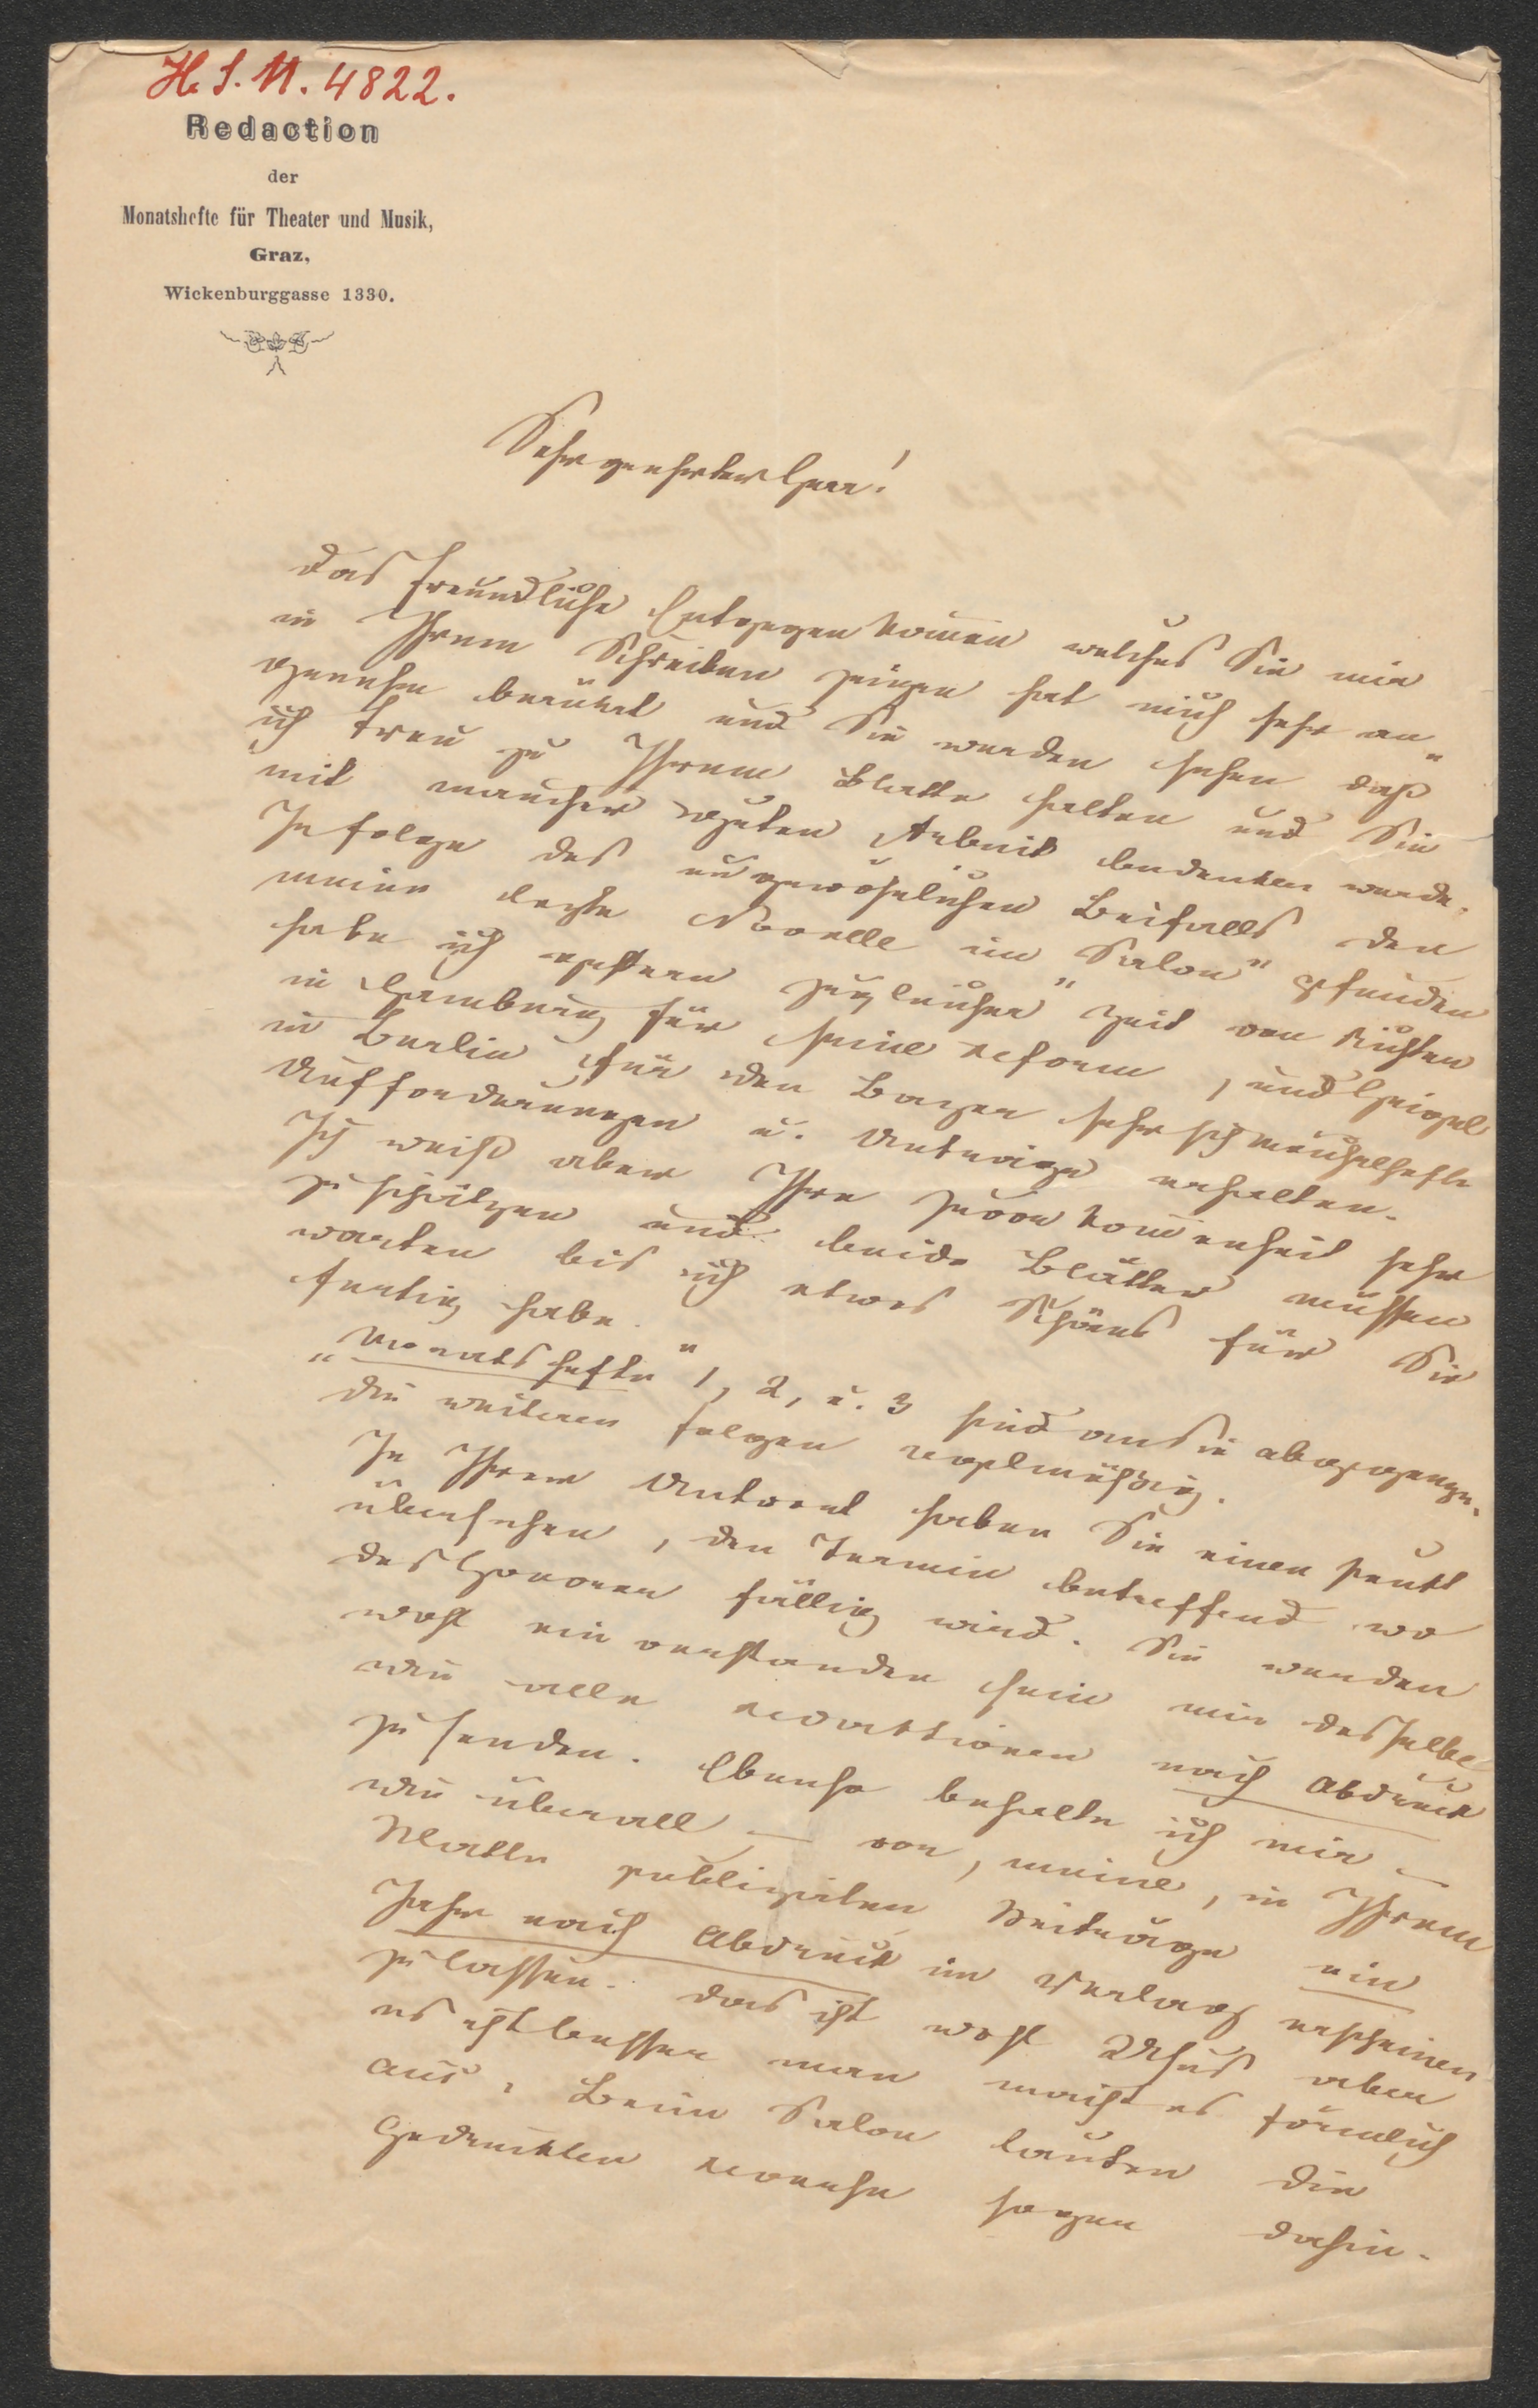 H. I. N. 4822.
Redaction
der
Monatshefte für Theater und Musik,
Graz,
Wickenburggasse 1330.
Sehr geehrter Herr!
Das freundliche Entgegenkommen welches Sie mir
in Ihrem Schreiben zeigen hat mich sehr an"
genehm berührt und Sie werden sehen daß
ich treu zu Ihrem Blatte halten und Sie
mit mancher guten Arbeit bedenken werde.
In folge des ungewöhnlichen Beifalls den
meine letzte Novelle im "Salon" gefunden
habe ich gestern zu gleicher Zeit von Richter
in Hamburg für seine Reform, und Spiegel
in Berlin für den Bazar sehr schmeichelhafte
Aufforderungen u. Anträge erhalten.
Ich weiß aber Ihre Zuvorkommenheit sehr
zu schätzen und beide Blätter müssen
warten bis ich etwas Schönes für Sie
fertig habe.
"Monatshefte" 1, 2, u. 3 sind an Sie abgegangen.
die weiteren folgen regelmäßig.
In Ihrer Antwort haben Sie einen Punkt
übersehen, den Termin betreffend wo
das Honorar fällig wird. Sie werden
wohl einverstanden sein mir dasselbe
wie alle Redaktionen nach Abdruck
zu senden. Ebenso behalte ich mir –
wie überall – vor, meine, in Ihrem
Blatte publizirten Beiträge ein
Jahr nach Abdruck im Verlag erscheinen
zu lassen. Das ist wohl Usus aber
es ist besser man macht es förmlich
aus. Beim Salon lauten die
Gedruckten Reverse sogar dahin.